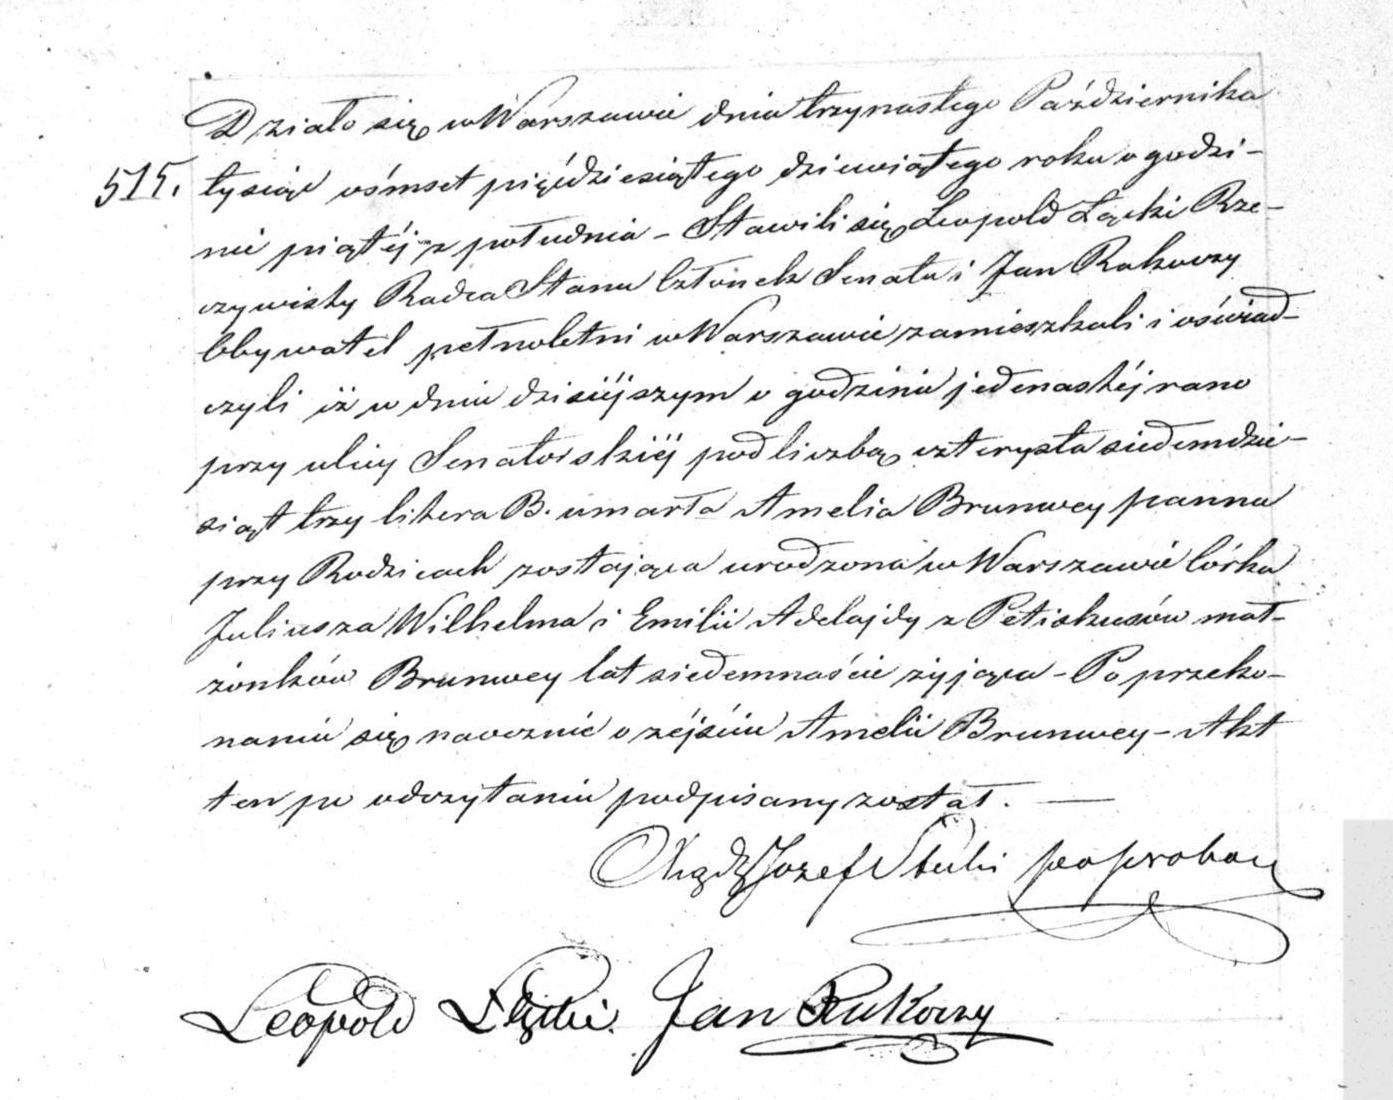 Działo się w Warszawie dnia trzynastego Października
515. tysiąc ośmset pięćdziesiątego dziewiątego roku o godzi-
nie piątéj z południa – Stawili się Leopold Łącki Rze-
czywisty Radca Stanu Członek Senatu i Jan Rakoczy
Obywatel pełnoletni w Warszawie zamieszkali i oświad-
czyli iż w dniu dzisiéjszym o godzinie jedenastéj rano
przy ulicy Senatorskiéj pod liczbą czterysta siedemdzie-
siąt trzy litera B. umarła Amelia Brunwey panna
przy Rodzicach zostająca urodzona w Warszawie Córka
Juliusza Wilhelma i Emilii Adelajdy z Petiskusów mał-
żonków Brunwey lat siedemnaście żyjąca – Po przeko-
naniu się naocznie o zéjściu Amelii Brunwey – Akt
ten po odczytaniu podpisany został. —
Xiądz Jozef Stecki
Leopold Łącki. Jan Rukoczy